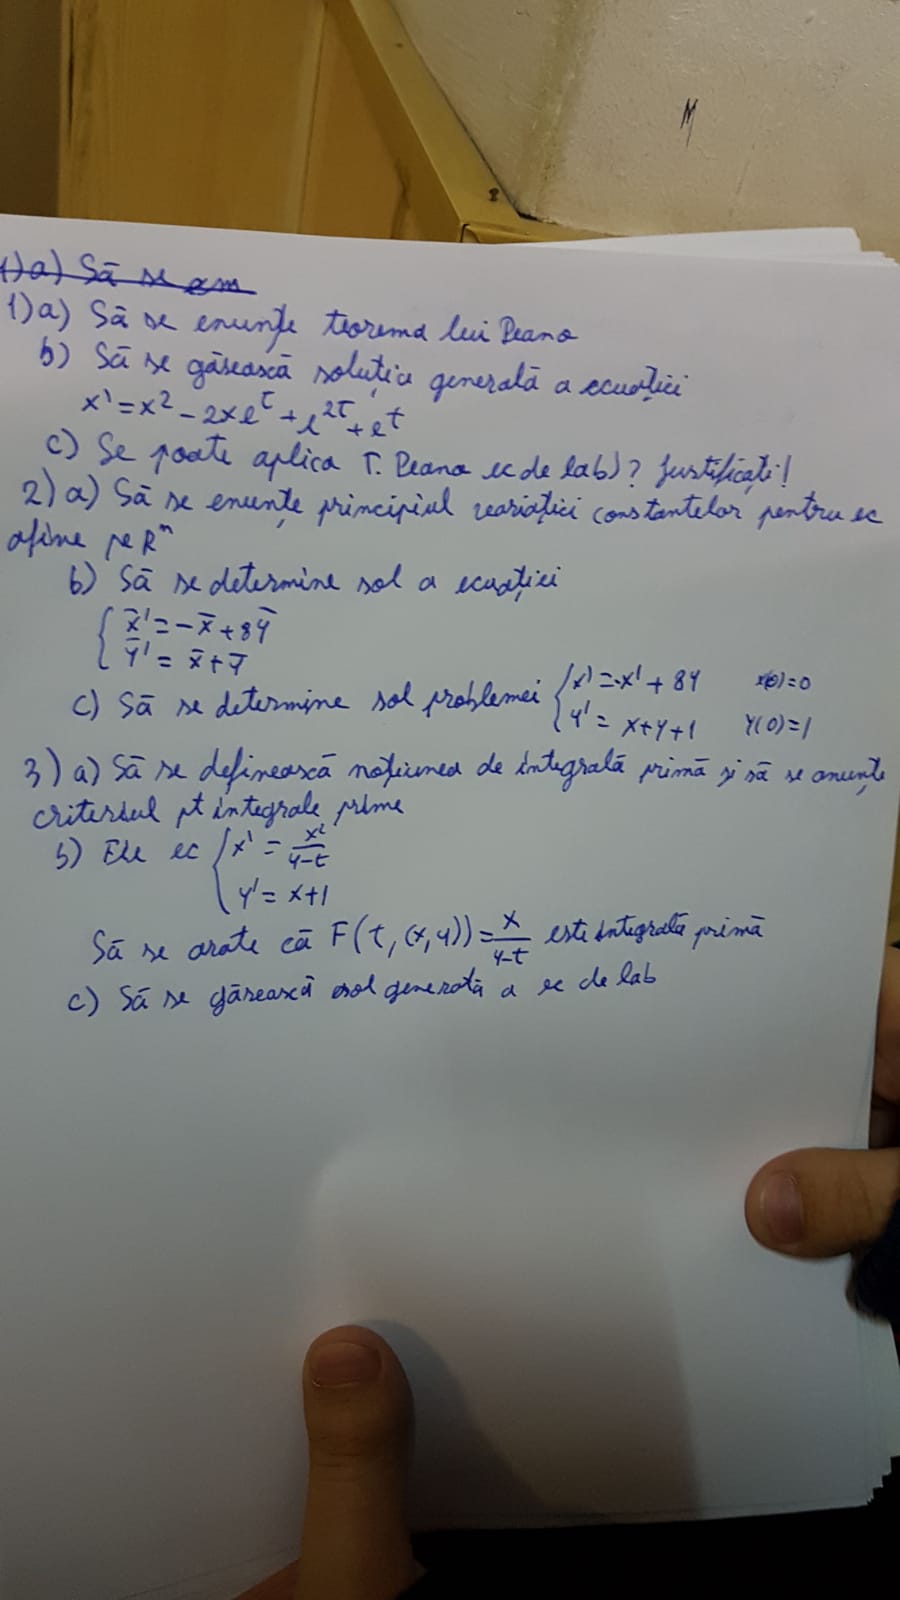 M
1)a) Să se em
1)a) Să se enunțe teorema lui Peano
b) Să se găsească soluția generală a ecuației
x' = x² - 2xeᵗ + e²ᵗ + eᵗ
c) Se poate aplica T. Peano ec de la b)? Justificați!
2) a) Să se enunțe principiul variației constantelor pentru ec
afine pe Rⁿ
b) Să se determine sol a ecuației
{ x̄' = -x̄ + 8ȳ
ȳ' = x̄ + ȳ
c) Să se determine sol problemei { x' = -x' + 8y x(0)=0
y' = x+y+1 y(0)=1
3) a) Să se definească noțiunea de integrală primă și să se anunțe
criteriul pt integrale prime
b) Fie ec { x' = x²/(y-t)
y' = x+1
Să se arate că F(t, (x, y)) = x/(y-t) este integrală primă
c) Să se găsească sol generală a ec de la b